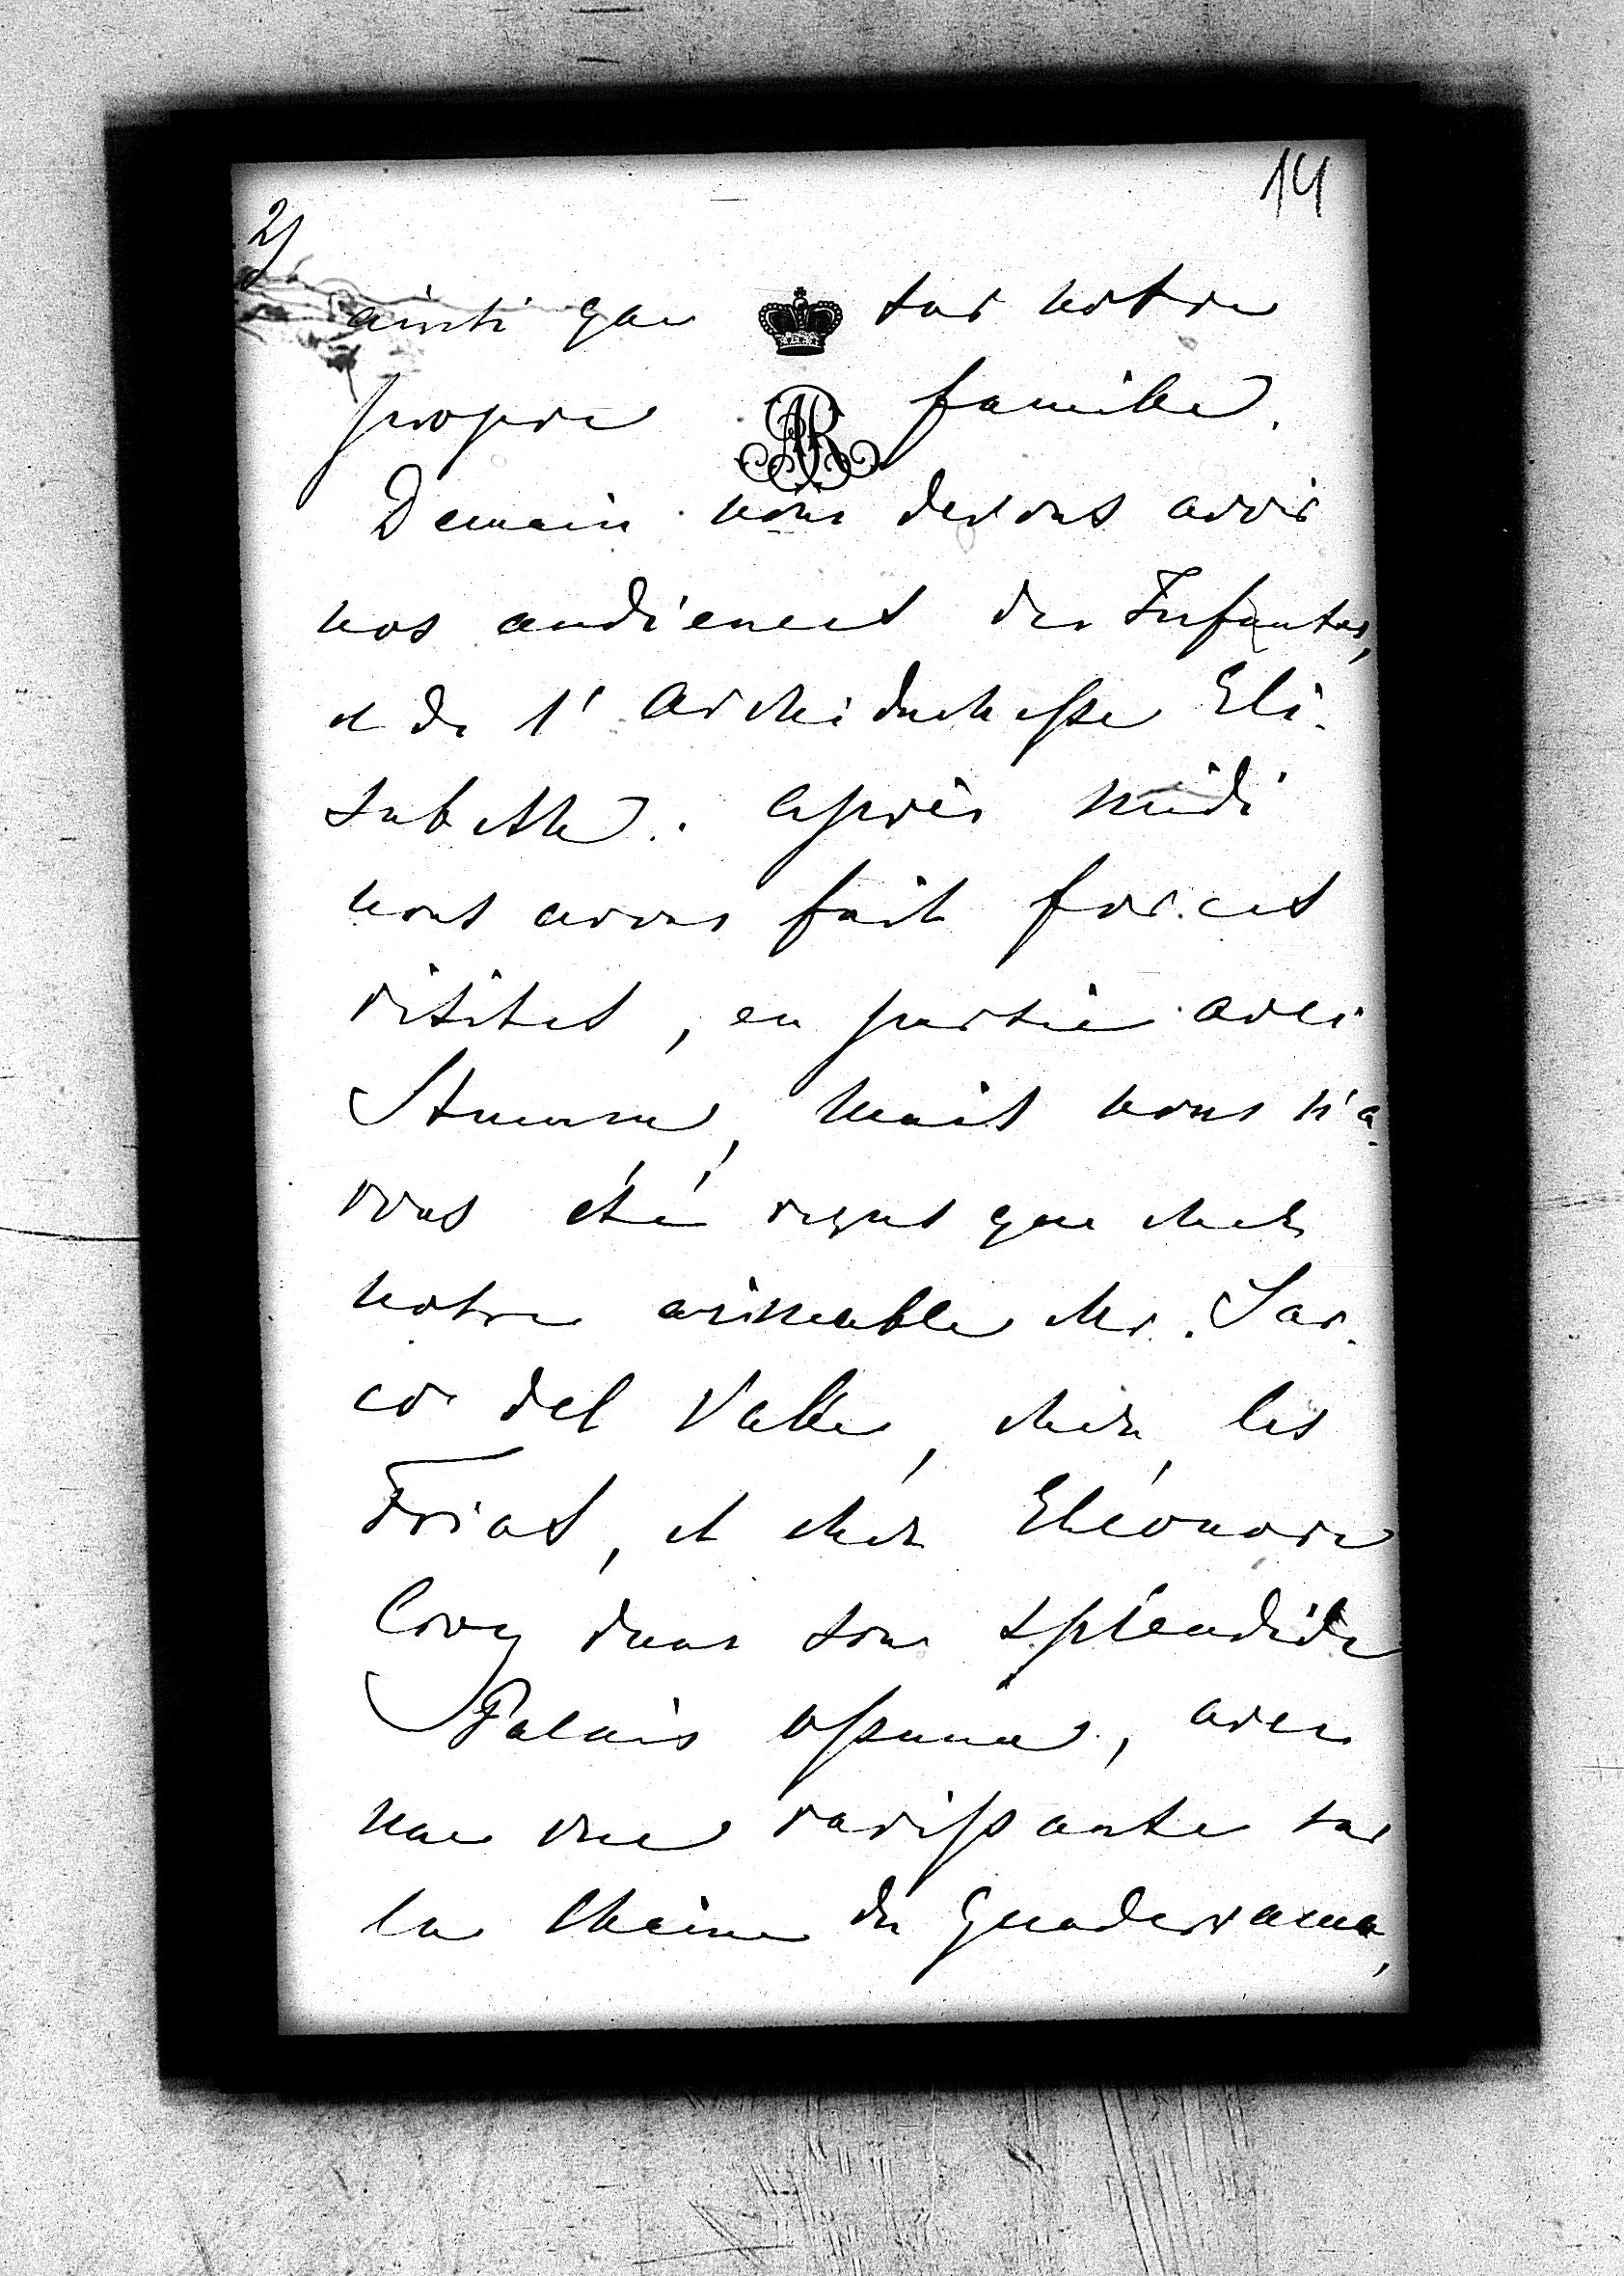 14
2)
ainsi que sur notre
propre famille.
Demain nous devons avoir
nos audiences des Infantes,
et de l'Archiduchesse Eli-
sabethe. Après midi
nous avons fait forces
visites, en partie avec
Stumm, mais nous n'a-
vons été reçus que chez
notre aimable Mr. Sar-
co del Valle, chez les
Frias, et chez Eléonore
Croy dans son splendide
Palais Ossuna, avec
une vue ravissante sur
la Chaine du Guaderrama,